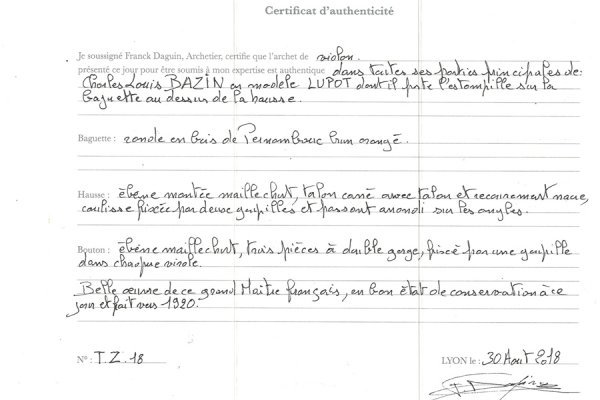 Certificat d'authenticité
Je soussigné Franck Daguin, Archetier, certifie que l'archet de violon.
présenté ce jour pour être soumis à mon expertise est authentique dans toutes ses parties principales de:
Charles Louis BAZIN en modèle LUPOT dont il porte l'estampille sur la
baguette au dessus de la hausse.
Baguette : ronde en bois de Pernambouc brun orangé.
Hausse : ébène montée maillechort, talon carré avec talon et recouvrement nacre,
coulisse fixée par deux goupilles et passant arrondi sur les angles.
Bouton : ébène maillechort, trois pièces à double gorge, fixé par une goupille
dans chaque virole.
Belle œuvre de ce grand Maître français, en bon état de conservation à ce
jour et fait vers 1920.
N° : T.Z. 18
LYON le : 30 Aout 2018